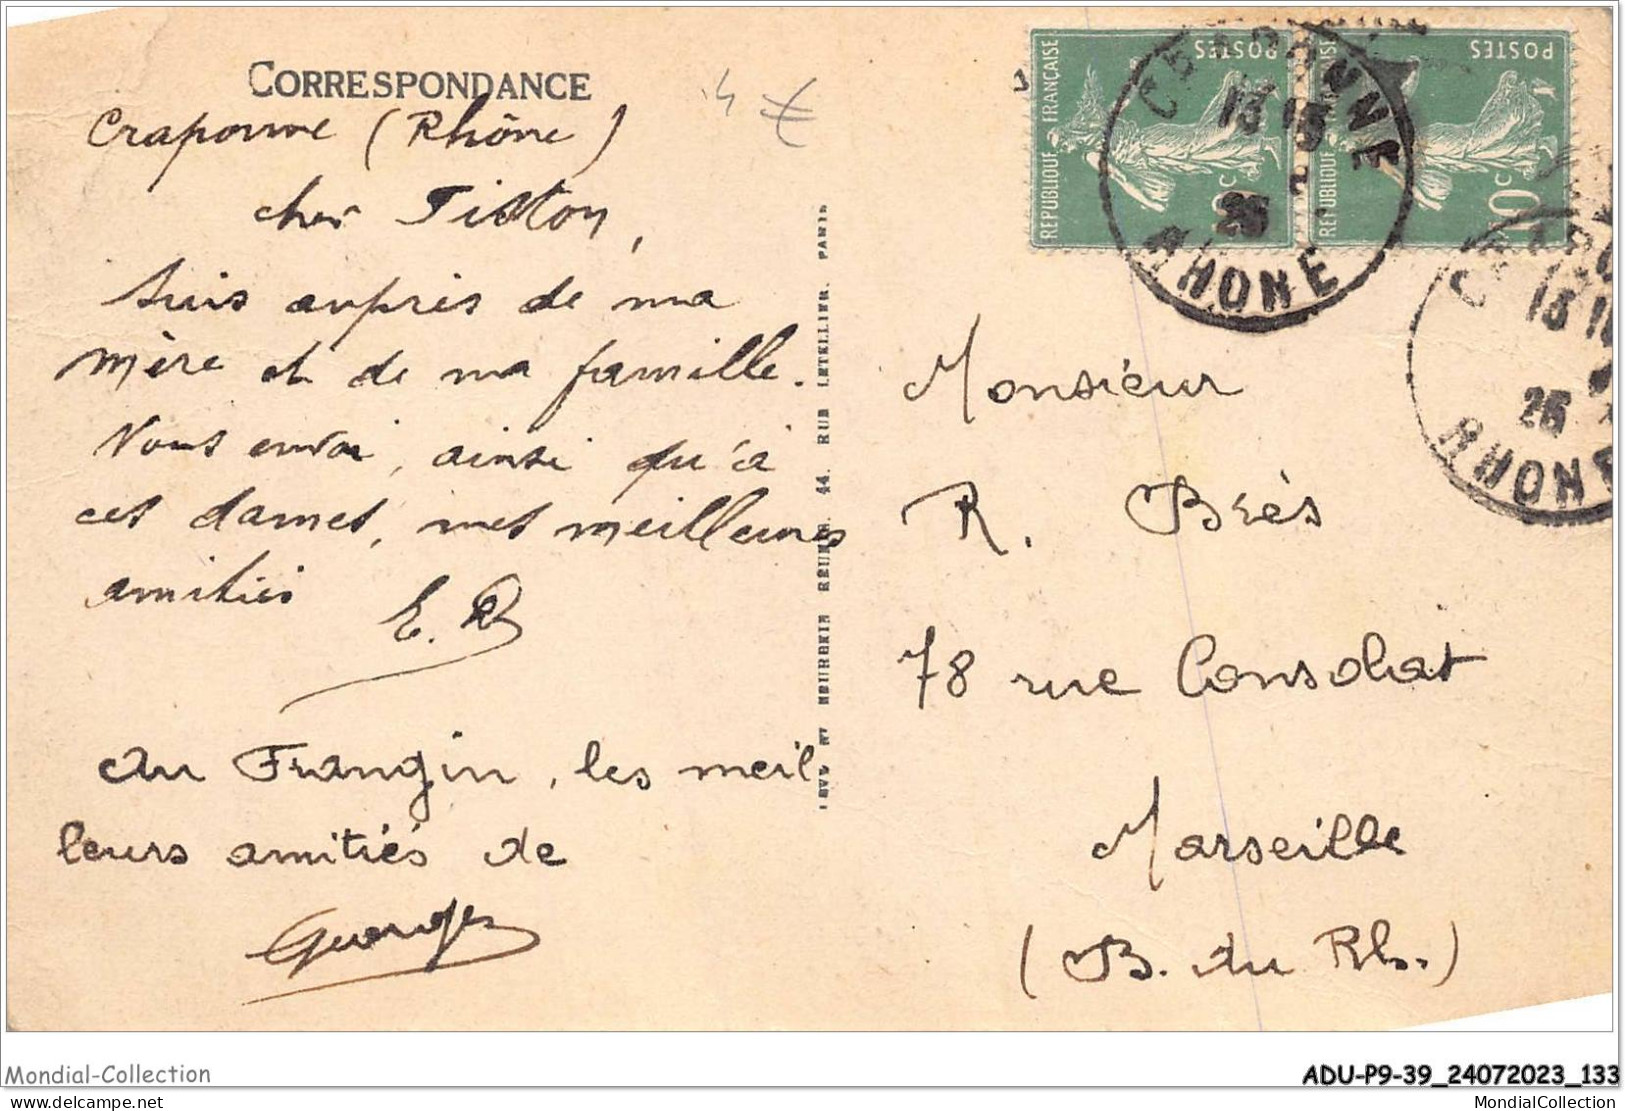 CORRESPONDANCE
Craponne (Rhône)
cher Tistou,
Suis auprès de ma
mère et de ma famille.
Vous envoi, ainsi qu'à
ces dames, mes meilleures
amitiés
E. B
Au Frangin, les meil
leurs amitiés de
Georges
LEVY ET NEURDEIN RÉUNIS, 44, RUE LETELLIER, PARIS
REPUBLIQUE FRANÇAISE
POSTES
10c
REPUBLIQUE FRANÇAISE
POSTES
10c
CRAPONNE
13 15
2
26
RHONE
CRAPO
13 1
26
RHONE
Monsieur
R. Brés
78 rue Consolat
Marseille
(B. du Rh.)
Mondial-Collection
ADU-P9-39_24072023_133
delcampe.net
MondialCollection